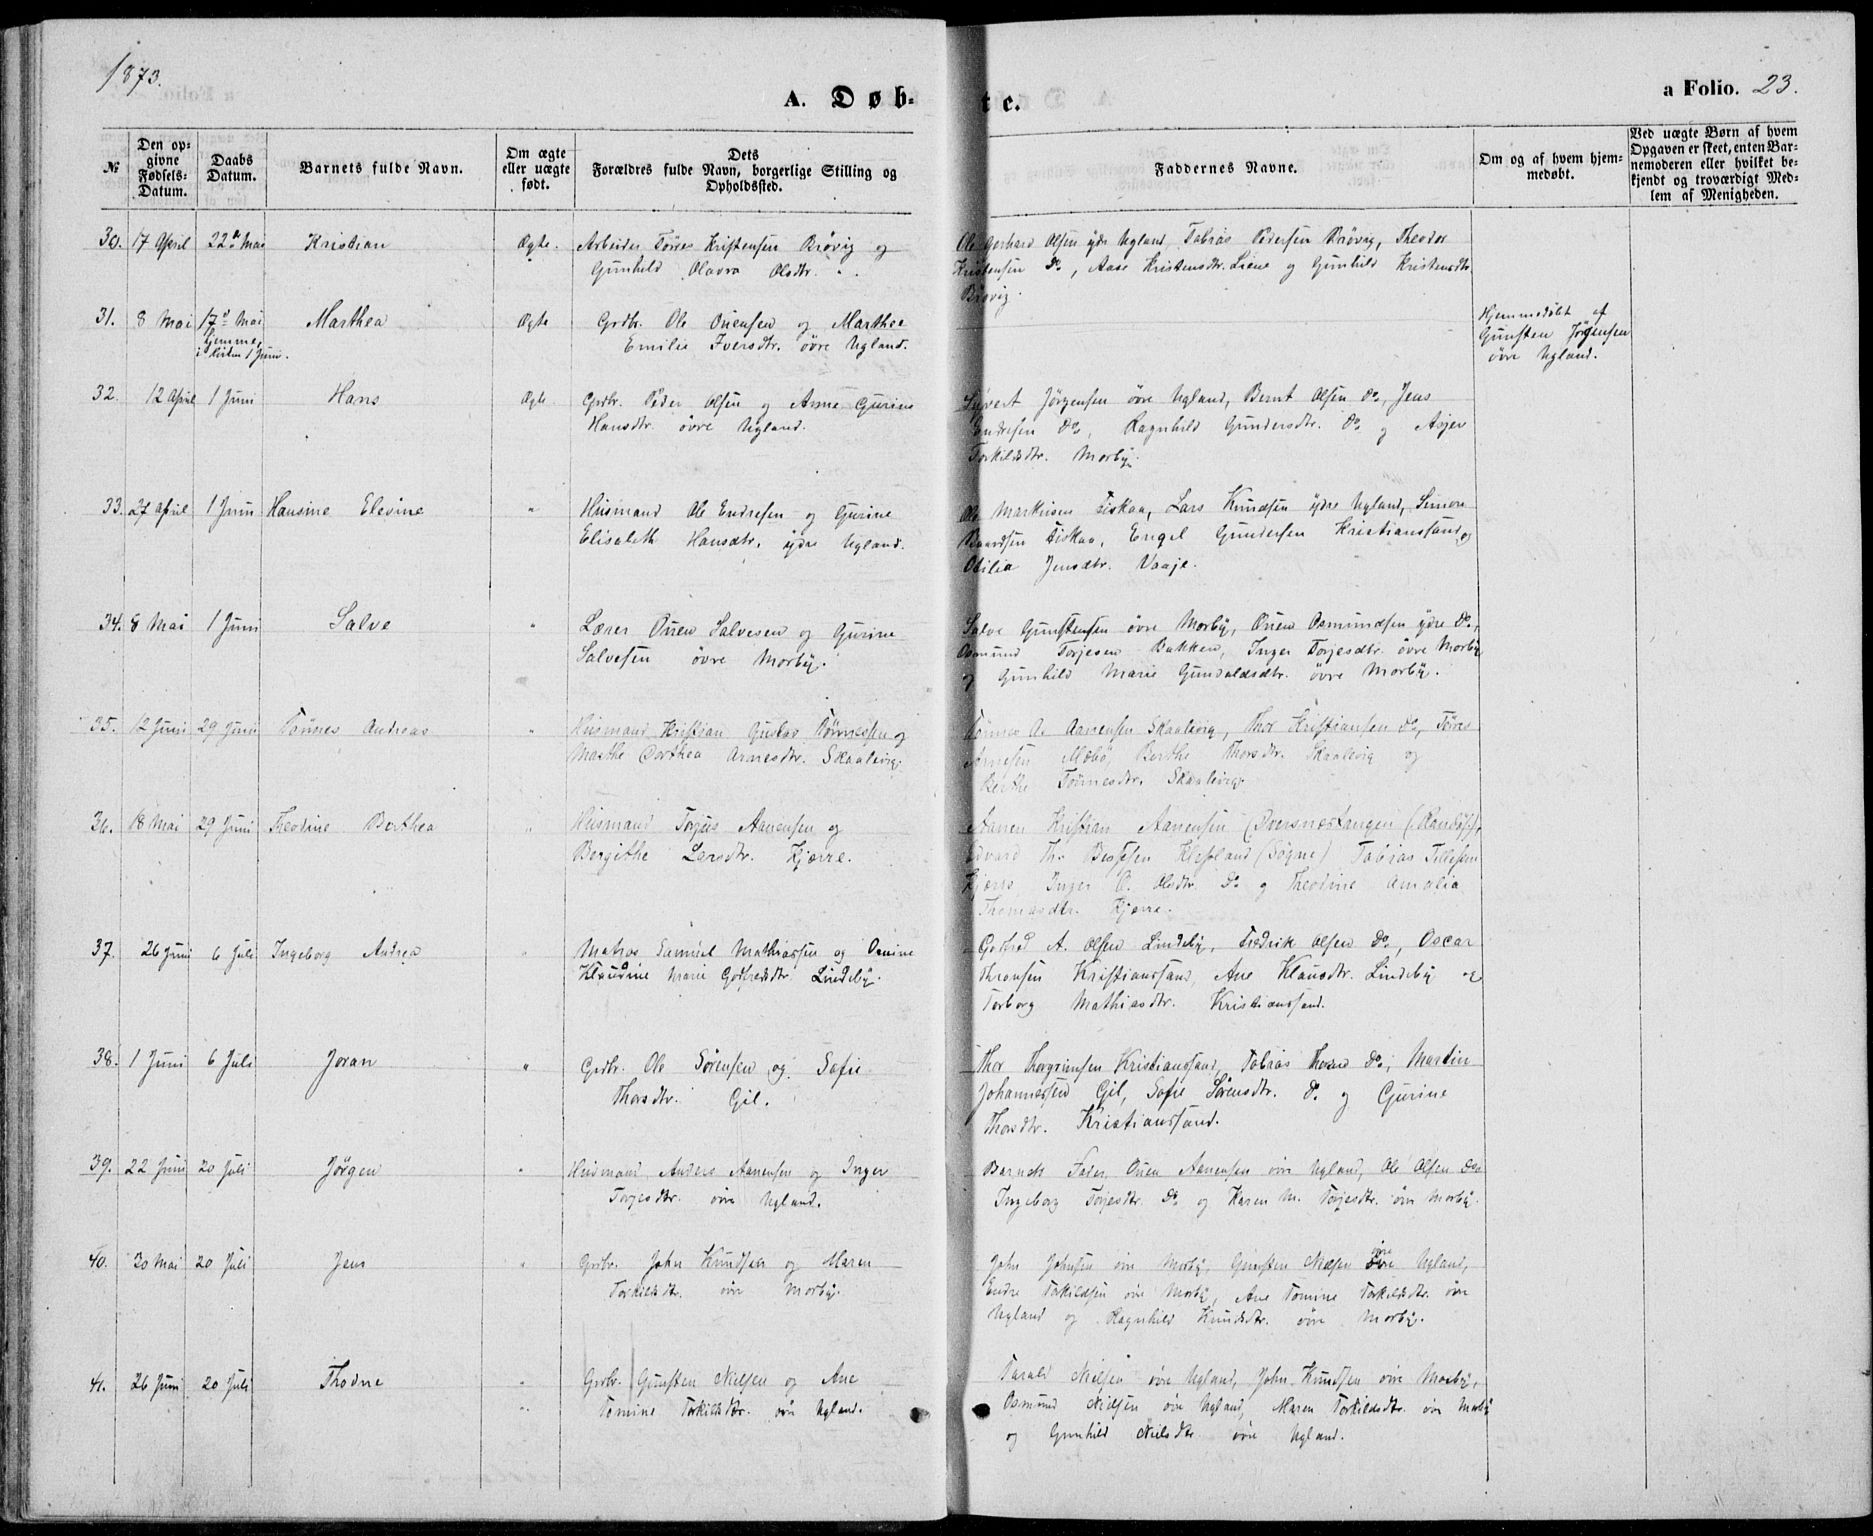 1873.
A. Døb-
te.
a Folio. 23.
№
Den op-
givne
Fødsels-
Datum.
Daabs
Datum.
Barnets fulde Navn.
Om ægte
eller uægte
født.
Dets
Forældres fulde Navn, borgerlige Stilling og
Opholdssted.
Faddernes Navne.
Om og af hvem hjem-
medøbt.
Ved uægte Børn af hvem
Opgaven er skeet, enten Bar-
nemoderen eller hvilket be-
kjendt og troværdigt Med-
lem af Menigheden.
30. 17 April 22de Mai Kristian Ægte. Arbeider Törres Kristensen Brövig og
Gunhild Olavra Olsdtr. "
Ole Gerhard Olsen ydre Ugland, Tobias Pedersen Brövig, Theodor
Kristensen Do, Aase Kristensdtr. Liene og Gunhild Kristensdtr.
Brövig.
31. 8 Mai 17de Mai Marthea Ægte Grdbr. Ole Ouensen og Marthea
hjemme, i Kirken 1 Juni.
Emilie Iversdtr. övre Ugland.
Hjemmedöbt af
Gunsten Jörgensen
övre Ugland.
32. 12 April 1 Juni Hans Ægte. Grdbr. Peder Olsen og Anne Gurine
Hansdtr. övre Ugland.
Syvert Jörgensen övre Ugland, Bernt Olsen Do, Jens
Endresen Do, Ragnhild Gundersdtr. Do og Asjer
Torkildsdtr. Morby.
33. 27 April 1 Juni Hansine Elevine " Husmand Ole Endresen og Gurine
Elisabeth Hansdtr. ydre Ugland.
Ole Markusen Fiskaa, Lars Knudsen ydre Ugland, Simon
Baardsen Fiskaa, Engel Gundersen Kristianssand og
Otilia Jensdtr. Vaaje.
34. 8 Mai 1 Juni Salve " Lærer Ouen Salvesen og Gurine
Salvesen övre Morby.
Salve Gunstensen övre Morby, Ouen Osmundsen ydre Do,
Osmund Torjesen Bakken, Inger Torjesdtr. övre Morby
og Gunhild Marie Gundaldsdtr. övre Morby.
35. 12 Juni 29 Juni Tönnes Andreas " Husmand Kristian Gustav Tönnessen og
Marthe Dorthea Arnesdtr. Skaalevig.
Tönnes A. Aanensen Skaalevig, Thor Kristiansen Do, Törres
Arnesen Mæbö, Berthe Thorsdtr. Skaalevig og
Berthe Tönnesdtr. Skaalevig.
36. 18 Mai 29 Juni Theodine Berthea " Husmand Torjus Aanensen og
Bergithe Larsdtr. Kjærre.
Aanen Kristian Aanensen Kversnestangen (Randös),
Edvard Th. Bessesen Klepland (Sögne) Tobias Tellefsen
Kjærre, Inger O. Olsdtr. Do og Theodine Amalia
Thomasdtr. Kjærre.
37. 26 Juni 6 Juli Ingeborg Andrea " Matros Samuel Mathiassen og Osmine
Klaudine Marie Gotfredsdtr. Lindeby.
Gotfred A. Olsen Lindeby, Fredrik Olsen Do, Oscar
Thronsen Kristianssand, Ane Klausdtr. Lindeby og
Torborg Mathiasdtr. Kristianssand.
38. 1 Juni 6 Juli Joran " Grdbr. Ole Sörensen og Sofie
Thorsdtr. Gil.
Thor Thorgrimsen Kristianssand, Tobias Thorsen Do, Martin
Johannessen Gil, Sofie Sörensdtr. Do og Gurine
Thorsdtr. Kristianssand.
39. 22 Juni 20 Juli Jörgen " Husmand Anders Aanensen og Inger
Torjesdtr. övre Ugland.
Barnets Fader, Ouen Aanensen övre Ugland, Ole Olsen Do
Ingeborg Torjesdtr. Do og Karen M. Torjesdtr. övre Morby.
40. 30 Mai 20 Juli Jens " Grdbr. John Knudsen og Maren
Torkildsdtr. övre Morby.
John Johnsen övre Morby, Gunsten Nielsen övre Ugland,
Endre Torkildsen övre Morby, Ane Tomine Torkildsdtr. övre
Ugland og Ragnhild Knudsdtr. övre Morby.
41. 26 Juni 20 Juli Thodne " Grdbr. Gunsten Nielsen og Ane
Tomine Torkildsdtr. övre Ugland.
Tarald Nielsen övre Ugland, John Knudsen övre Morby,
Osmund Nielsen övre Ugland, Maren Torkildsdtr. övre Morby
og Gunhild Nielsdtr övre Ugland.